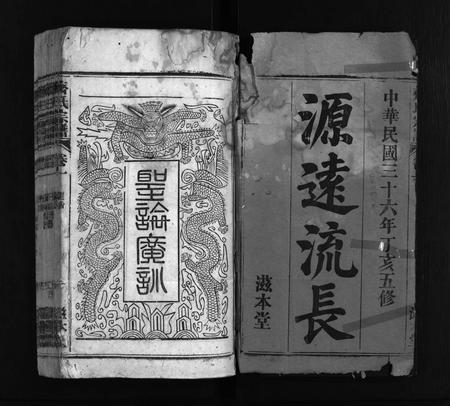 中華民國三十六年丁亥五修
源遠流長
滋本堂
聖諭廣訓